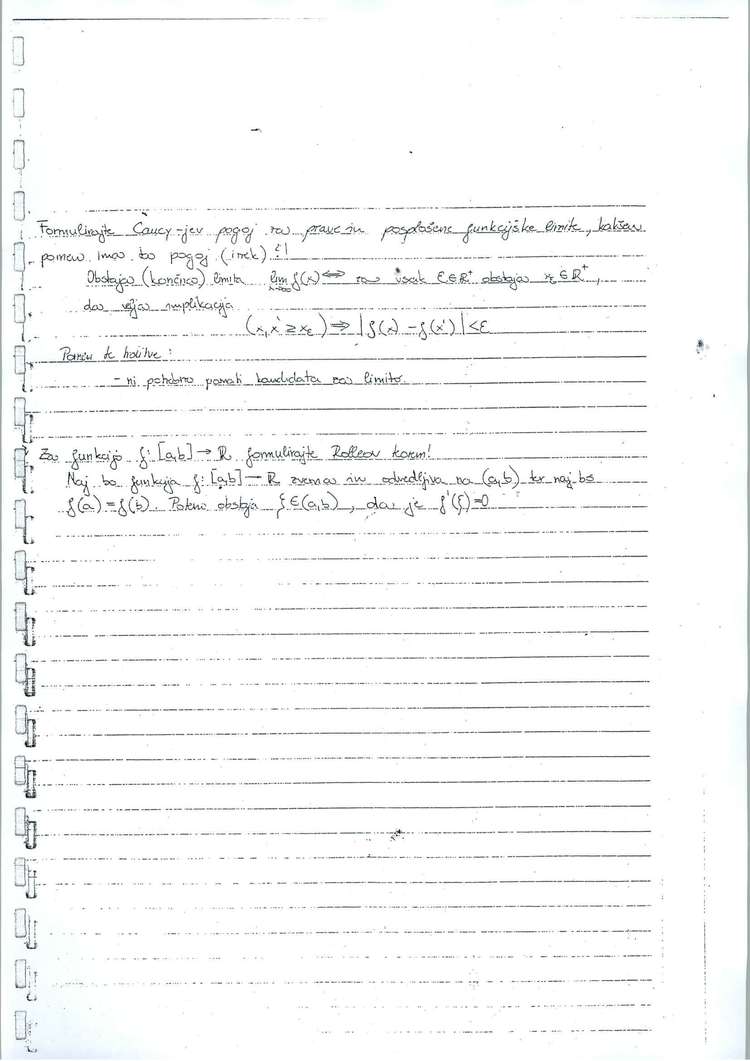 Formulirajte Caucy-jev pogoj za prave in posplošene funkcijske limite, kakšen
pomen ima ta pogoj (izrek)!
Obstaja (končna) limita lim x→∞ f(x) ⟺ za vsak ε∈R⁺ obstaja x_ε∈R⁺,
da velja implikacija
(x, x' ≥ x_ε) ⇒ |f(x) - f(x')| < ε
Pomen te trditve:
- ni potrebno poznati kandidata za limito.
Za funkcijo f: [a,b] → R formulirajte Rolleov izrek!
Naj bo funkcija f: [a,b] → R zvezna in odvedljiva na (a,b) ter naj bo
f(a) = f(b). Potem obstaja ξ∈(a,b), da je f'(ξ)=0